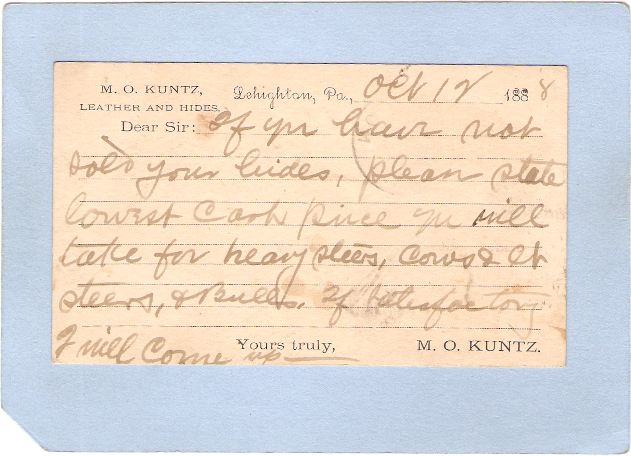 M. O. KUNTZ,
LEATHER AND HIDES.
Lehighton, Pa., Oct 12 1888
Dear Sir: If yu have not
sold your hides, please state
lowest Cash price yu will
take for heavy steers, Cows & Lt
steers, & Bulls. If satisfactory
I will Come up
Yours truly, M. O. KUNTZ.